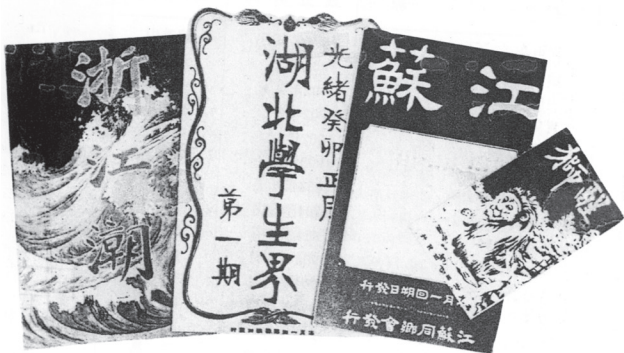 浙江潮
光緒癸卯正月
湖北學生界
第一期
江蘇
月一回朔日發行
江蘇同鄉會發行
醒獅